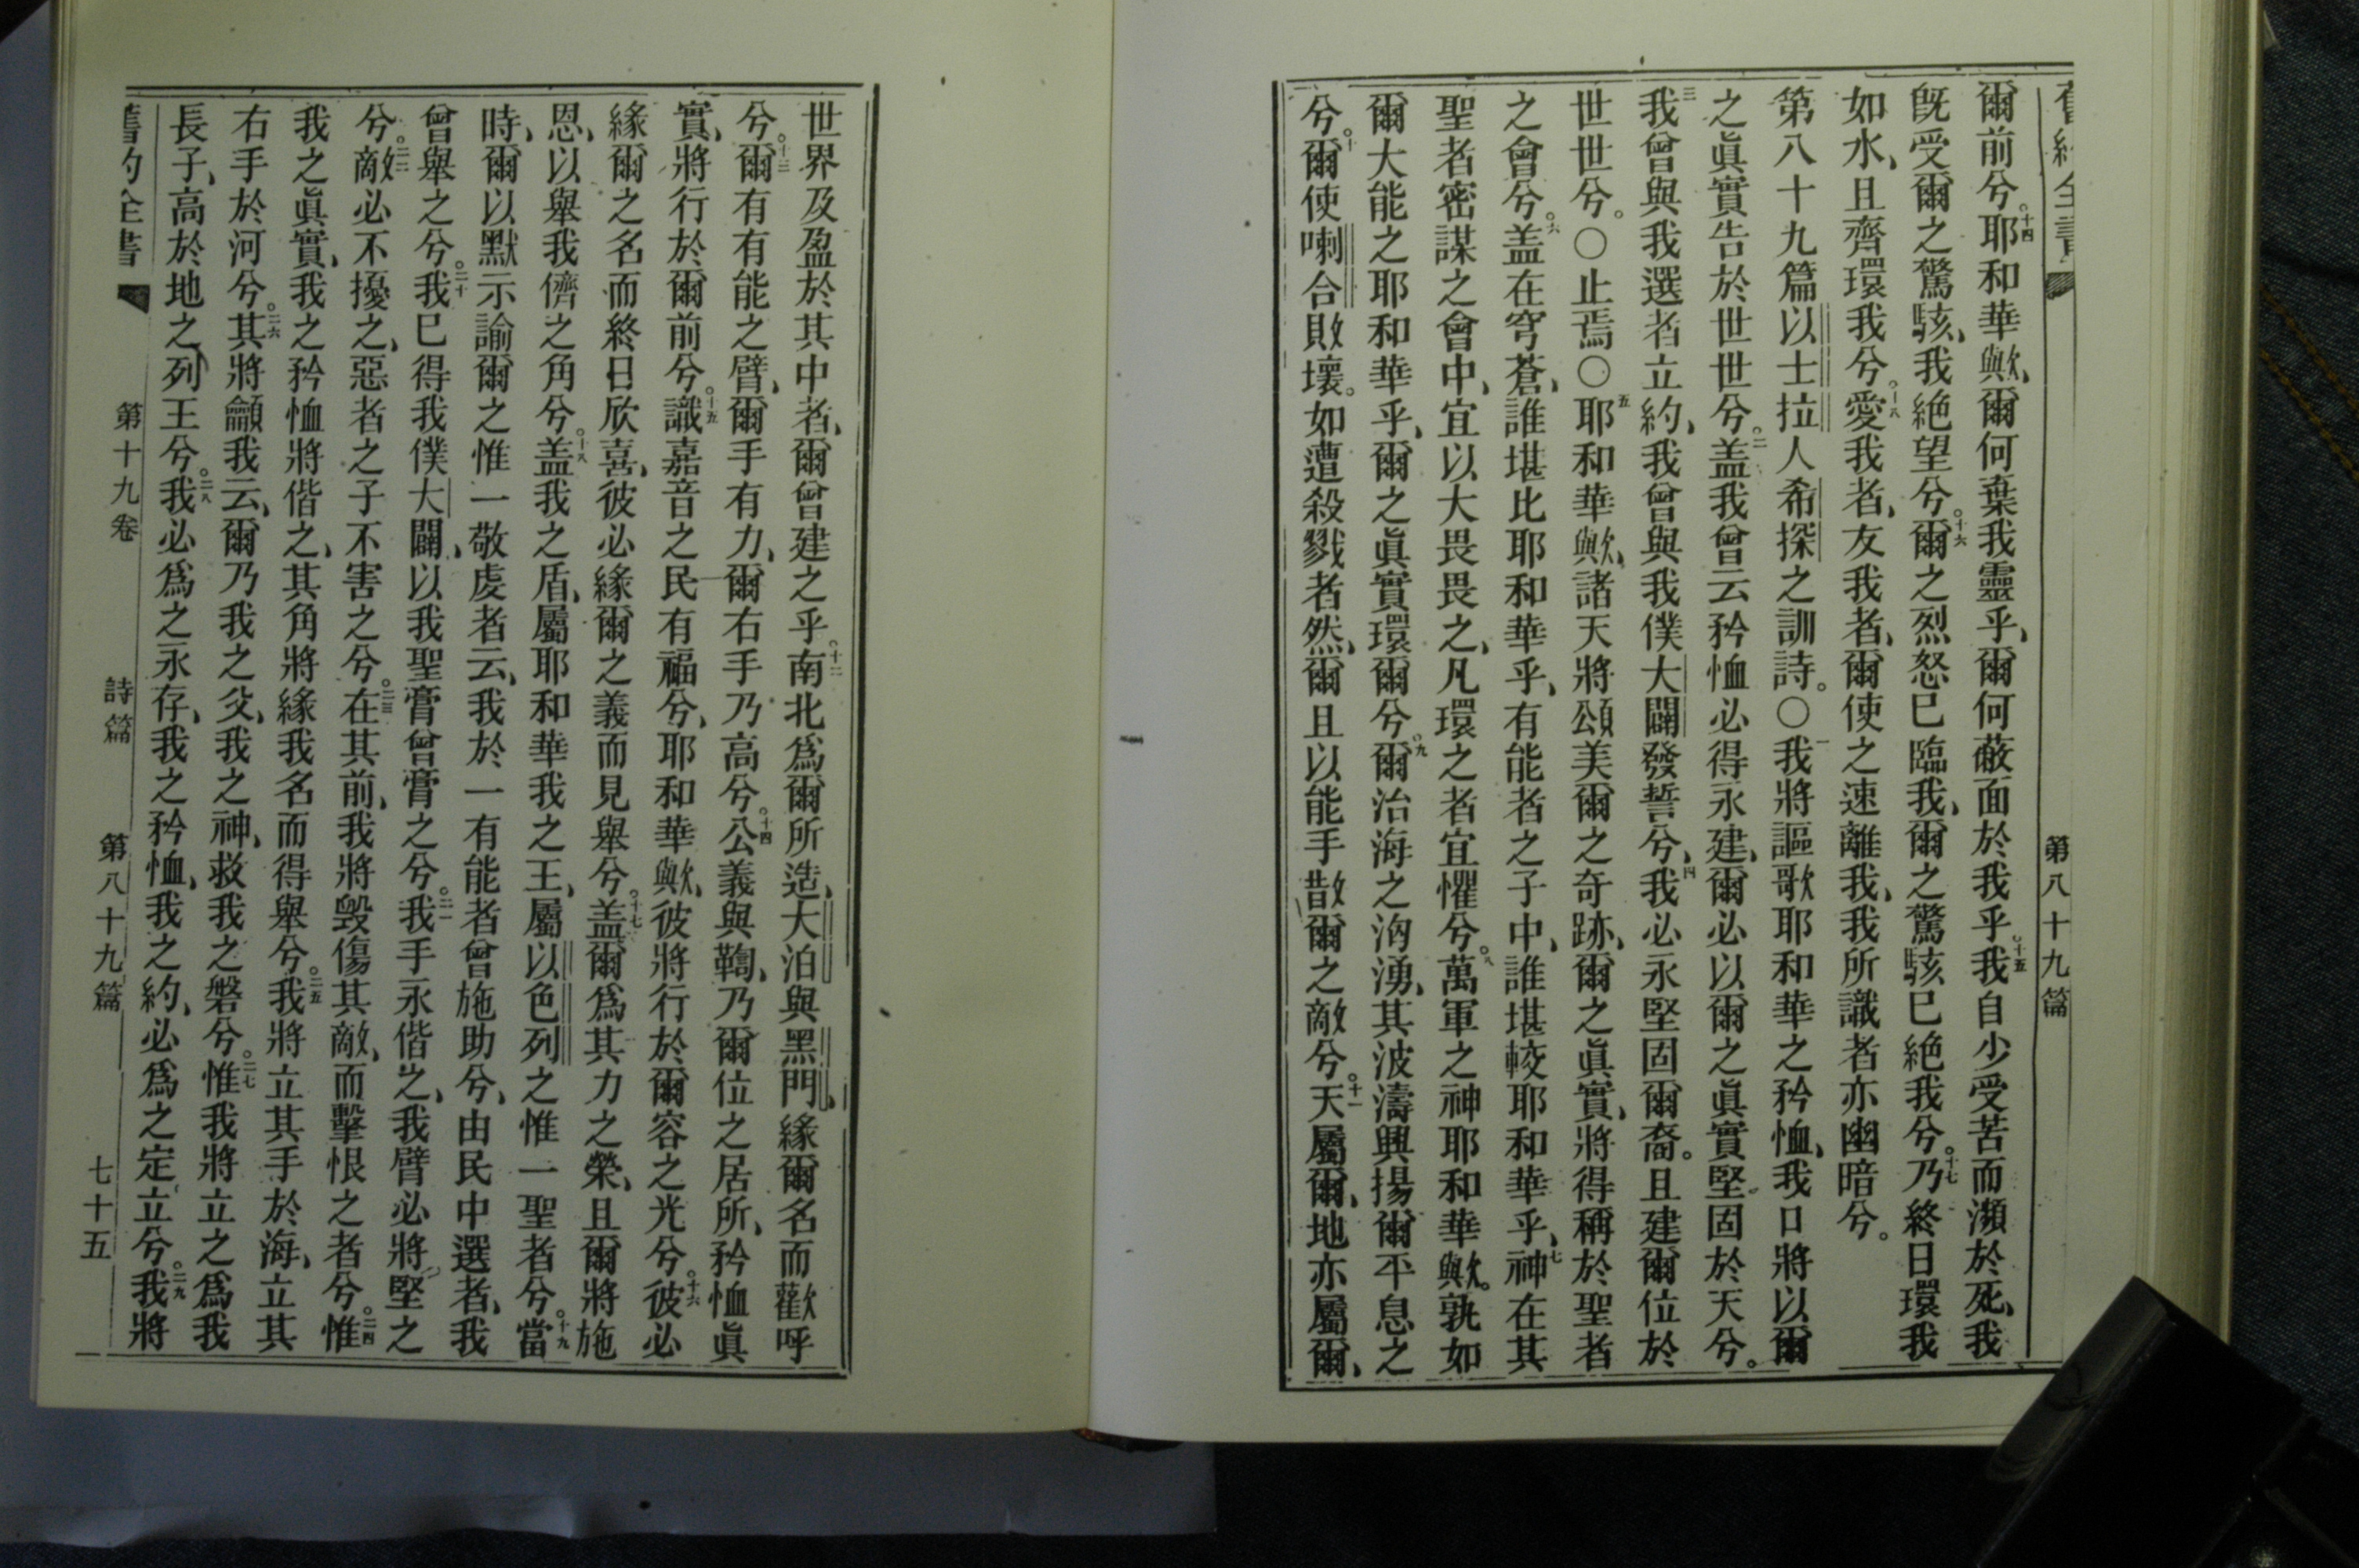 舊約全書 第八十九篇
爾前兮。十四耶和華歟、爾何棄我靈乎、爾何蔽面於我乎。十五我自少受苦而瀕於死、我
既受爾之驚駭、我絕望兮。十六爾之烈怒巳臨我、爾之驚駭巳絕我兮。十七乃終日環我
如水、且齊環我兮。十八愛我者、友我者、爾使之速離我、我所識者亦幽暗兮。
第八十九篇以士拉人希探之訓詩。〇一我將謳歌耶和華之矜恤、我口將以爾
之眞實告於世世兮。二盖我曾云矜恤必得永建、爾必以爾之眞實堅固於天兮。
三我曾與我選者立約、我曾與我僕大闢發誓兮、四我必永堅固爾裔。且建爾位於
世世兮。〇止焉〇五耶和華歟、諸天將頌美爾之奇跡、爾之眞實、將得稱於聖者
之會兮。六盖在穹蒼、誰堪比耶和華乎、有能者之子中、誰堪較耶和華乎、七神在其
聖者密謀之會中、宜以大畏畏之、凡環之者宜懼兮。八萬軍之神耶和華歟。孰如
爾大能之耶和華乎、爾之眞實環爾兮。九爾治海之洶湧、其波濤興揚爾平息之
兮。十爾使喇合敗壞。如遭殺戮者然、爾且以能手散爾之敵兮。十一天屬爾、地亦屬爾、
世界及盈於其中者、爾曾建之乎。十二南北爲爾所造、大泊與黑門、緣爾名而歡呼
兮。十三爾有有能之臂、爾手有力、爾右手乃高兮。十四公義與鞫、乃爾位之居所、矜恤眞
實、將行於爾前兮。十五識嘉音之民有福兮、耶和華歟、彼將行於爾容之光兮。十六彼必
緣爾之名而終日欣喜、彼必緣爾之義而見舉兮。十七盖爾爲其力之榮、且爾將施
恩、以舉我儕之角兮。十八盖我之盾、屬耶和華我之王、屬以色列之惟一聖者兮。十九當
時、爾以默示諭爾之惟一敬虔者云、我於一有能者曾施助兮、由民中選者、我
曾舉之兮。二十我巳得我僕大闢、以我聖膏曾膏之兮。二一我手永偕之、我臂必將堅之
兮。二二敵必不擾之、惡者之子不害之兮。二三在其前、我將毀傷其敵、而擊恨之者兮。二四惟
我之眞實、我之矜恤將偕之、其角將緣我名而得舉兮。二五我將立其手於海、立其
右手於河兮。二六其將籲我云、爾乃我之父、我之神、救我之磐兮。二七惟我將立之爲我
長子、高於地之列王兮。二八我必爲之永存、我之矜恤、我之約、必爲之定立兮。二九我將
舊約全書 第十九卷 詩篇 第八十九篇 七十五